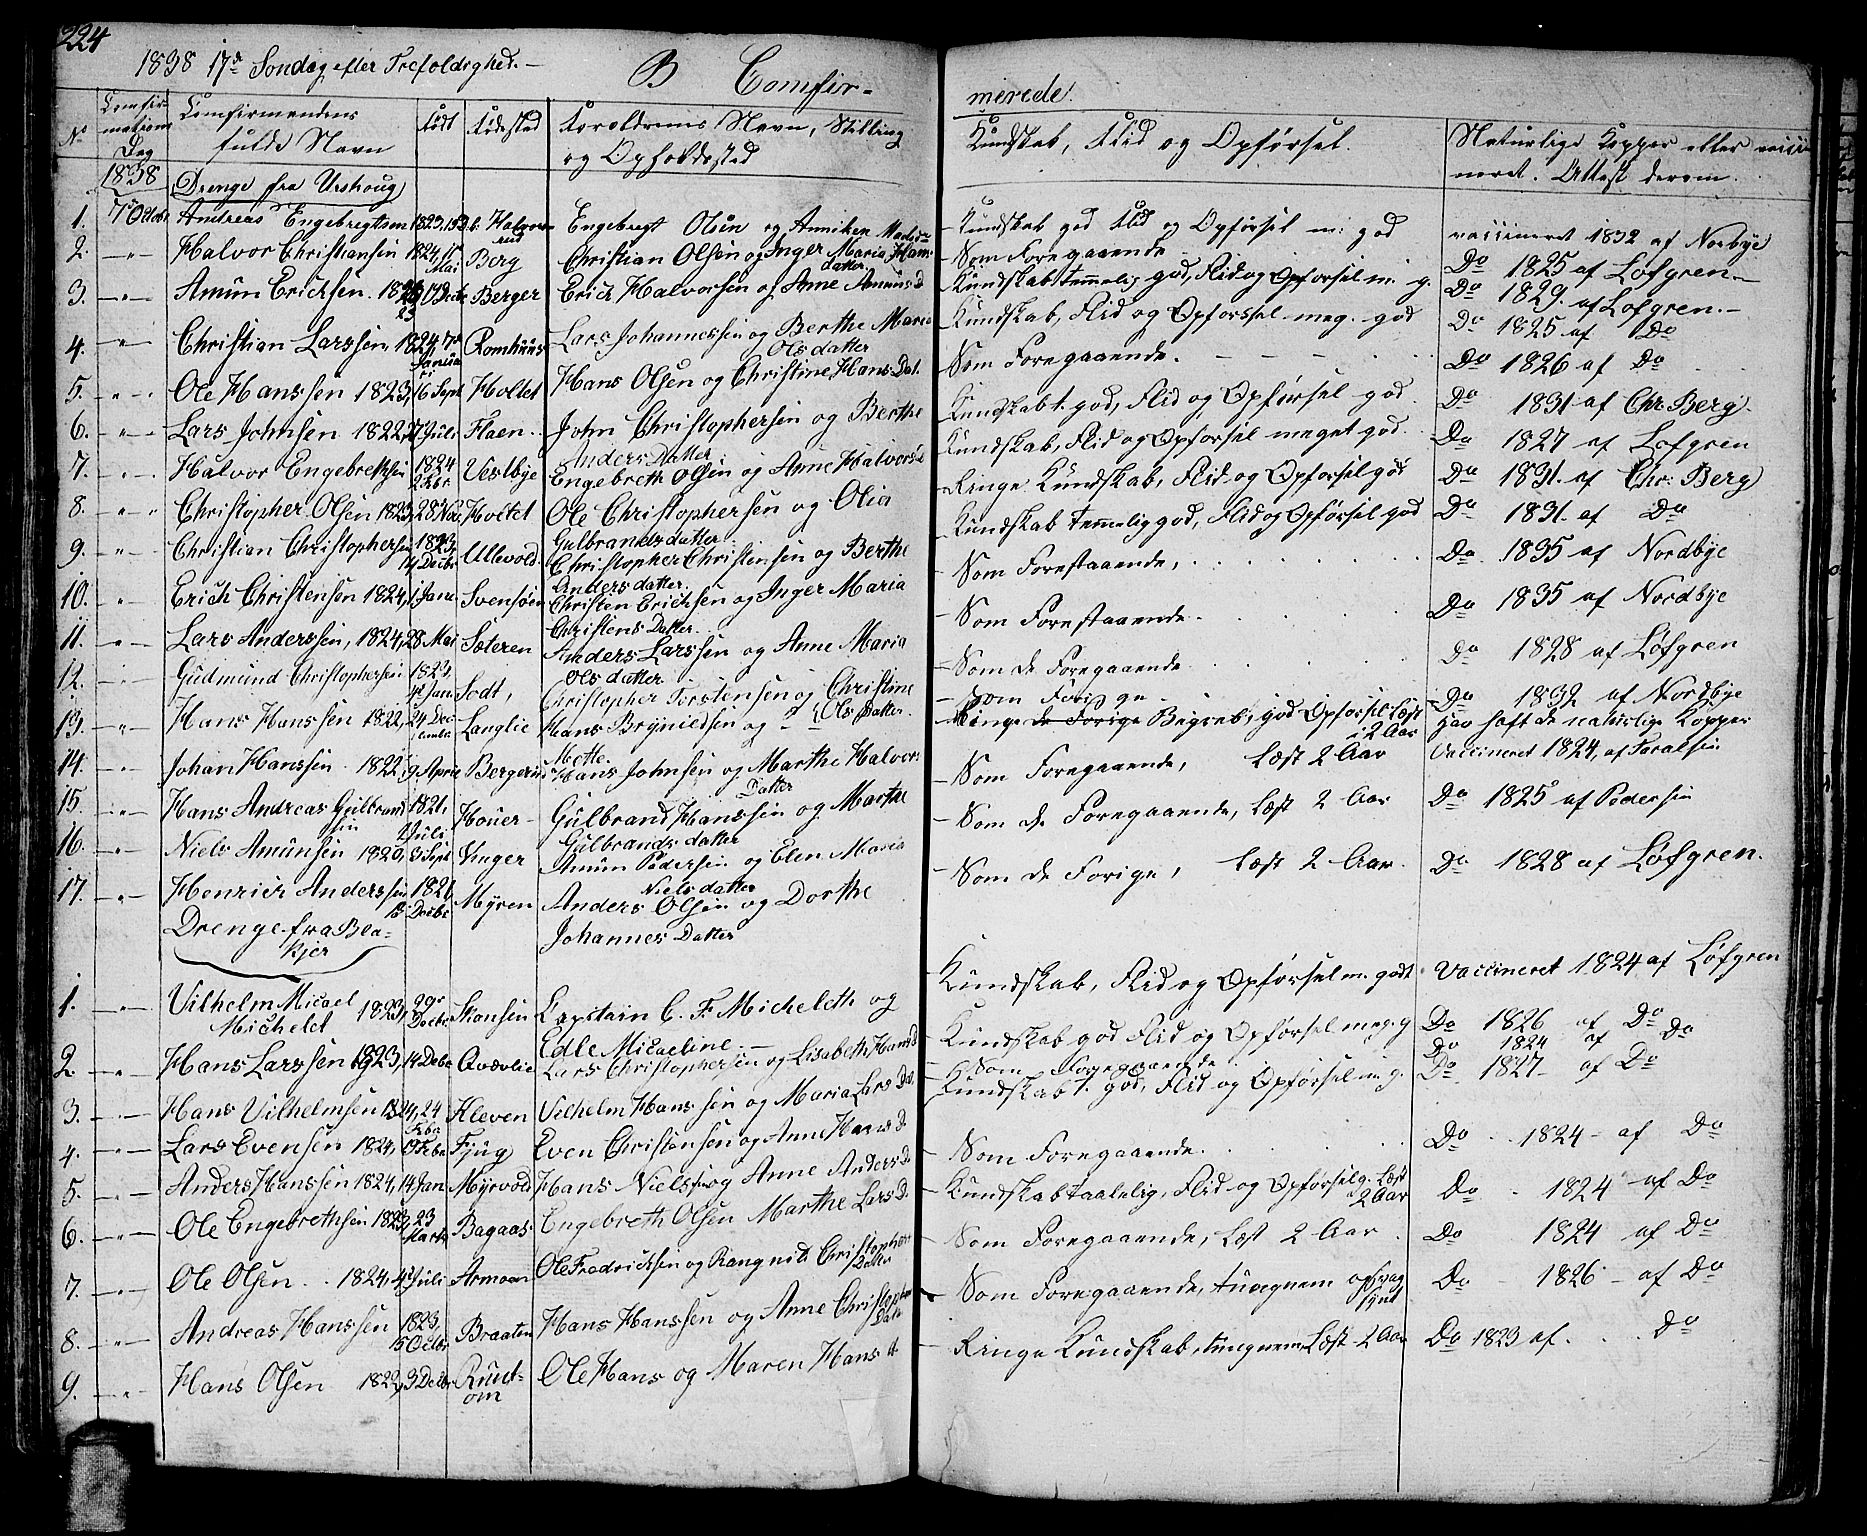 224
1838 17de Søndag efter Trefoldighed.—
B Comfir-
merede.
No Comfirmations Dag Comfirmandens fulde Navn Født Fødested Forældrenes Navn, Stilling og Opholdssted Kundskab, Flid og Opførsel. Naturlige Kopper eller vaccineret. Attest derom.
1838 Drenge fra Urshoug
1. 7de Octobr. Andreas Engebregtsen 1823, Halvorsrud Engebregt Olsen og Anniken Kundskab god Flid og Opførsel m: god vaccineret 1832 af Norbye
2. —"— Halvor Christiansen 1824, Mai Berg Christian Olsen og Inger Maria Hansdatter Som Foregaaende Do 1825 af Løfgren.—
3. —"— Amun Ericksen. Berger Erick Halvorsen og Anne Amunsd Kundskab temmelig god, Flid og Opførsel m. g. Do 1829. af Løfgren.—
4. —"— Christian Larssen 1824 Januari Romhuus Lars Johannessen og Berthe Maria Olsdatter Kundskab, Flid og Opførssel meg. god Do 1825 af Do
5. —"— Ole Hanssen 1823, 16 Sept Holtet Hans Olsen og Christine Hans Dat. Som Foregaaende. Do 1826 af Do
6. —"— Lars Johnsen 1822, Juli Flaen. John Christophersen og Berthe Anders Datter Kundskab t. god, Flid og Opførsel god. Do 1831 af Chr. Berg
7. —"— Halvor Engebrethsen 1824 Vestbye Engebreth Olsen og Anne Halvorsd Kundskab, Flid og Opførsel meget god. Do 1827 af Løfgren
8. —"— Christopher Olsen 1823, 28 Nov. Holtet Ole Christophersen og Olia Gulbrandsdatter Ringe Kundskab, Flid og Opførsel god Do 1831. af Chr: Berg
9. —"— Christian Christophersen 1823, 14 Decbr Ullevold. Christopher Christensen og Berthe Andersdatter. Kundskab temmelig god, Flid og Opførsel god Do 1831. af Do
10. —"— Erich Christensen 1824, 1 Janu Svensøen Christen Ericksen og Inger Maria Christens Datter. Som Forestaaende, Do 1835 af Nordbye
11. —"— Lars Anderssen, 1824, 28 Mai Sæteren Anders Larssen og Anne Maria Ols datter Som Forestaaende. Do 1835 af Nordbye
12. —"— Gudmund Christophersen 1823, Jan Sodt, Christopher Torstensen og Christine Ols Datter. Som de Foregaaende Do 1828 af Løfgren
13. —"— Hans Hanssen 1822, 24 December Langlie Hans Brynildsen og Mette Som Forige Do 1832 af Nordbye
Ringe de Forige Begreb, god Opførsel Læst i 2 Aar Har haft de naturlige Kopper
14. —"— Johan Hanssen 1822, 9 April Bergerud Hans Johnsen og Marthe Halvors Datter Som Foregaaende, Læst 2 Aar Vaccineret 1824, af
15. —"— Hans Andreas Gulbrandsen 1821, Juli Houer Gulbrand Hanssen og Marthe Gulbrands datter Som de Foregaaende, Læst 2 Aar Do 1825 af Pedersen
16. —"— Niels Amunsen 1820, Sept Unger Amun Pedersen og Elen Maria Niels datter Som de Forige, Læst 2 Aar. Do 1828 af Løfgren.
17. —"— Henrick Anderssen 1821 Decbr Myren Anders Olsen og Dorthe Johannes Datter
Drenge fra Blakjer
1. —"— Vilhelm Micael Michelet 1823, 29de Decbr Skansen Capitain C. F. Micheleth og Edle Micaeline.— Kundskab, Flid og Opførsel m. godt. Vaccineret 1824 af Løfgren
2. —"— Hans Larssen 1823, 14 Decbr Qvevlie Lars Christophersen og Lisabeth Hansd Kundskab god Flid og Opførsel meg. g Do 1826 af Do
Som Foregaaende Do 1824 af Do
3. —"— Hans Vilhelmsen 1824, 24 Febr Kleven Vilhelm Hanssen og Maria Lars Dat. Kundskab t. god, Flid og Opførsel m. g. Do 1827 af Do
4. —"— Lars Evensen 1824, Febr Fjug Even Christensen og Anne Hans D Som Foregaaende. Do 1824 af Do
5. —"— Anders Hanssen 1824, 14 Jan Myrvold Hans Nielssen og Anne Anders D Kundskab taalelig, Flid og Opførsel g. Læst 2 Aar Do 1824 af Do
6. —"— Ole Engebrethsen 1823, 23 Marts Bagaas Engebreth Olsen Marthe Lars D. Som Foregaaende, Læst 2 Aar. Do 1824 af Do
7. —"— Ole Olsen 1824, 4 Juli Armoen Ole Fredricksen og Rangnild Christopher Datter Som Foregaaende, tungnem og svagsynt Do 1826 af Do
8. —"— Andreas Hanssen 1823, 5 Octbr Braaten Hans Hanssen og Anne Christopher Datr Ringe Kundskab, tungnem Læst 2 Aar Do 1823 af. Do
9. —"— Hans Olsen 1822, 3 Decbr Rustom Ole Hans og Maren Hans d